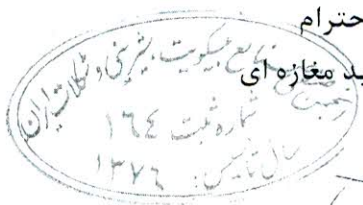 حترام
ید مغازه ای
انجمن صنایع بیسکویت، شیرینی و شکلات ایران
شماره ثبت ١٦٤
سال تأسیس: ١٣٧٦